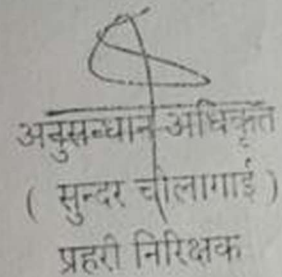 अनुसन्धान अधिकृत
( सुन्दर चौलागाई )
प्रहरी निरिक्षक